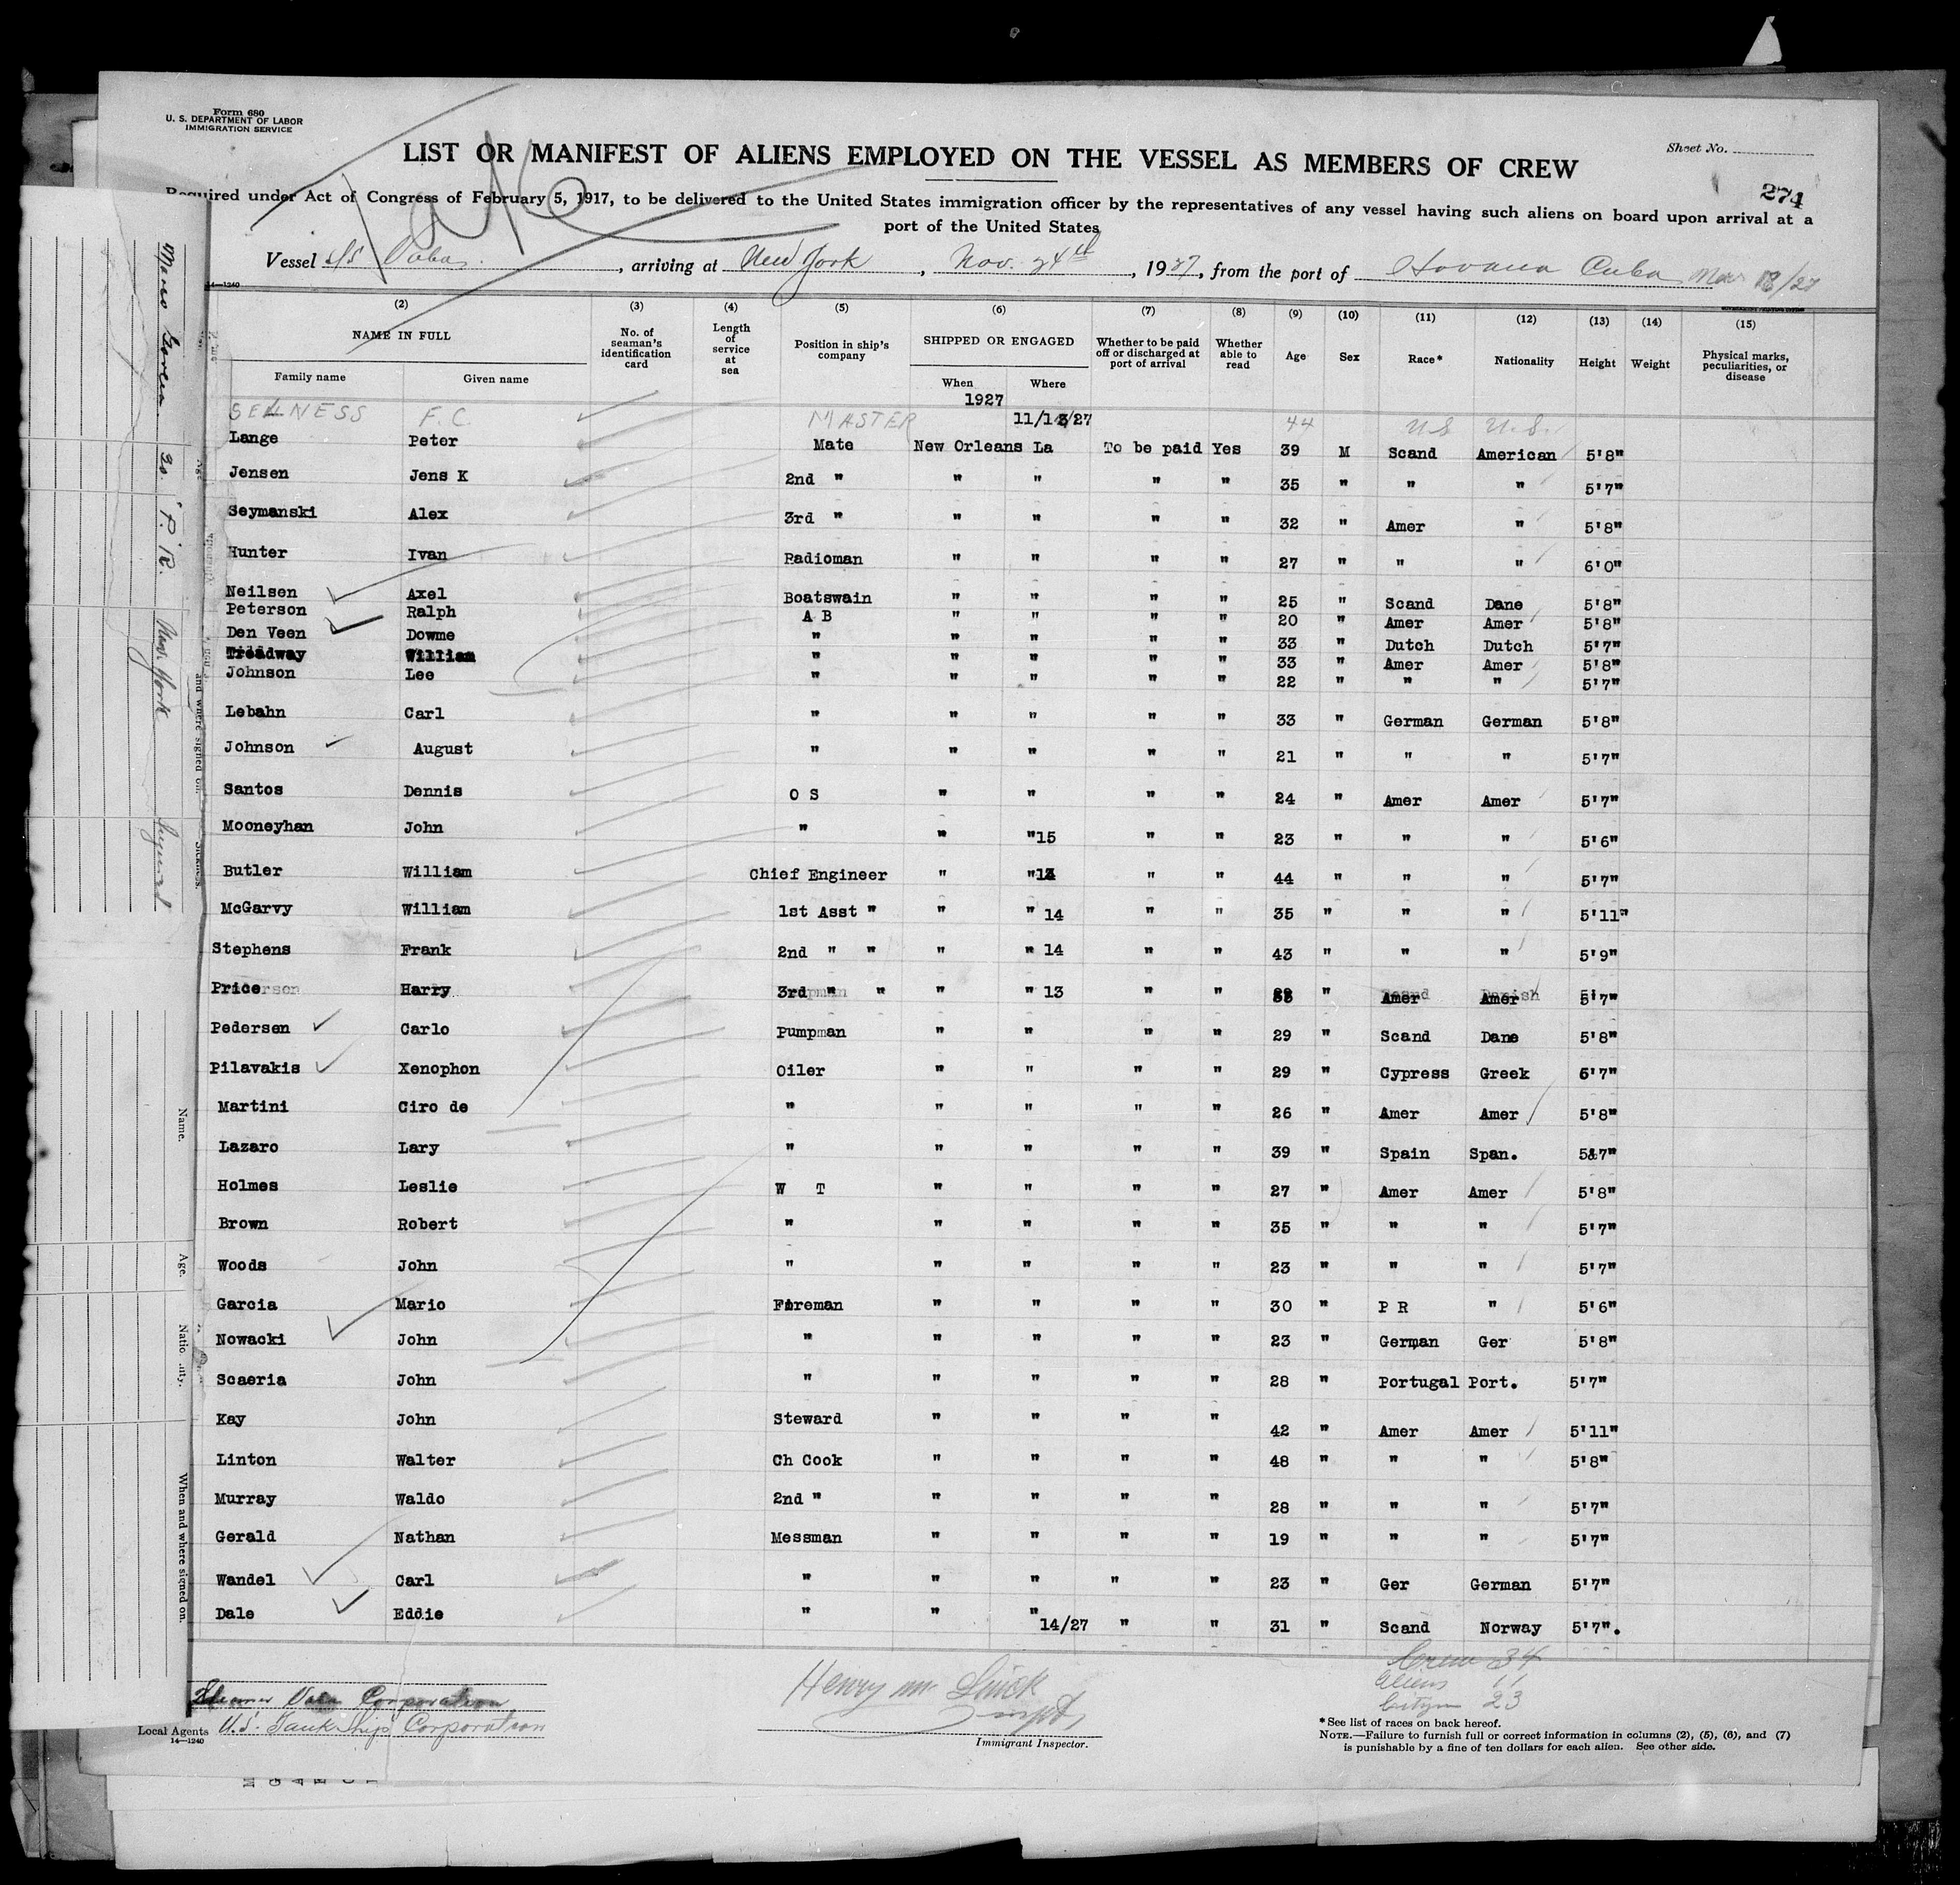 Form 680
U. S. DEPARTMENT OF LABOR
IMMIGRATION SERVICE
LIST OR MANIFEST OF ALIENS EMPLOYED ON THE VESSEL AS MEMBERS OF CREW
Sheet No.
274
Required under Act of Congress of February 5, 1917, to be delivered to the United States immigration officer by the representatives of any vessel having such aliens on board upon arrival at a
port of the United States
Vessel S/S, arriving at New York, Nov. 24th, 1927, from the port of Havana Cuba Nov 18/27
14—1240
(2) (3) (4) (5) (6) (7) (8) (9) (10) (11) (12) (13) (14) (15)
NAME IN FULL
Family name Given name
No. of seaman's identification card
Length of service at sea
Position in ship's company
SHIPPED OR ENGAGED
When Where
1927
Whether to be paid off or discharged at port of arrival
Whether able to read
Age
Sex
Race*
Nationality
Height
Weight
Physical marks, peculiarities, or disease
F. C. MASTER 11/13/27 44 U.S. U.S.
Lange Peter Mate New Orleans La To be paid Yes 39 M Scand American 5'8"
Jensen Jens K 2nd " " " " " 35 " " " 5'7"
Seymanski Alex 3rd " " " " " 32 " Amer " 5'8"
Hunter Ivan Radioman " " " " 27 " " " 6'0"
Neilsen Axel Boatswain " " " " 25 " Scand Dane 5'8"
Peterson Ralph A B " " " " 20 " Amer Amer 5'8"
Den Veen Dowme " " " " " 33 " Dutch Dutch 5'7"
Treadway William " " " " " 33 " Amer Amer 5'8"
Johnson Lee " " " " " 22 " " " 5'7"
Lebahn Carl " " " " " 33 " German German 5'8"
Johnson August " " " " " 21 " " " 5'7"
Santos Dennis O S " " " " 24 " Amer Amer 5'7"
Mooneyhan John " " "15 " " 23 " " " 5'6"
Butler William Chief Engineer " " " " 44 " " " 5'7"
McGarvy William 1st Asst " " " 14 " " 35 " " " 5'11"
Stephens Frank 2nd " " " " 14 " " 43 " " " 5'9"
Price Harry 3rd " " " " 13 " " " Amer Amer 5'7"
Pedersen Carlo Pumpman " " " " 29 " Scand Dane 5'8"
Pilavakis Xenophon Oiler " " " " 29 " Cypress Greek 5'7"
Martini Ciro de " " " " " 26 " Amer Amer 5'8"
Lazaro Lary " " " " " 39 " Spain Span. 5&7"
Holmes Leslie W T " " " " 27 " Amer Amer 5'8"
Brown Robert " " " " " 35 " " " 5'7"
Woods John " " " " " 23 " " " 5'7"
Garcia Mario Fireman " " " " 30 " P R " 5'6"
Nowacki John " " " " " 23 " German Ger 5'8"
Scaeria John " " " " " 28 " Portugal Port. 5'7"
Kay John Steward " " " " 42 " Amer Amer 5'11"
Linton Walter Ch Cook " " " " 48 " " " 5'8"
Murray Waldo 2nd " " " " " 28 " " " 5'7"
Gerald Nathan Messman " " " " 19 " " " 5'7"
Wandel Carl " " " " " 23 " Ger German 5'7"
Dale Eddie " " " 14/27 " " 31 " Scand Norway 5'7".
Crew 34
Aliens 11
Citizn 23
Corporation
Local Agents U.S. Tank Ship Corporation
14—1240
Henry
Immigrant Inspector.
*See list of races on back hereof.
NOTE.—Failure to furnish full or correct information in columns (2), (5), (6), and (7)
is punishable by a fine of ten dollars for each alien. See other side.
30. P. R. New York
and where signed on.
Sickness.
Name.
Age.
When and where signed on.